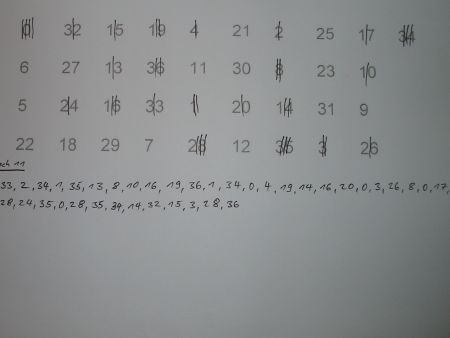 0 32 15 19 4 21 2 25 17 34
6 27 13 36 11 30 8 23 10
5 24 16 33 1 20 14 31 9
22 18 29 7 28 12 35 3 26
ach 11
33, 2, 34, 1, 35, 13, 8, 10, 16, 19, 36, 1, 34, 0, 4, 19, 14, 16, 20, 0, 3, 26, 8, 0, 17,
28, 24, 35, 0, 28, 35, 34, 14, 32, 15, 3, 28, 36